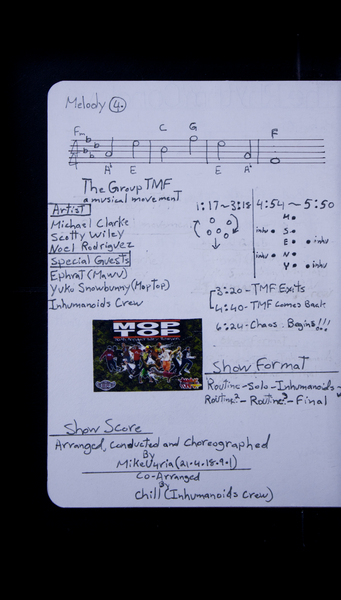 Melody 4.
Fm C G F
A♭ E E A♭
The Group TMF
a musical movement
Artist
Michael Clarke
Scotty Wiley
Noel Rodriguez
Special Guests
Ephrat (Manv)
Yuko Snowbunny (MopTop)
Inhumanoids Crew
1:17~3:18
4:54~5:50
M
inhu S
E inhu
inhu N
Y inhu
3:20-TMF Exits
4:40-TMF Comes Back
6:24-Chaos Begins!!!
MOP
TOP
Show Format
Routine-Solo-Inhumanoids-
Routine2-Routine3-Final
Show Score
Arranged, Conducted and Choreographed
By
(21.4.18.9.1)
Co-Arranged
By
Chill (Inhumanoids Crew)